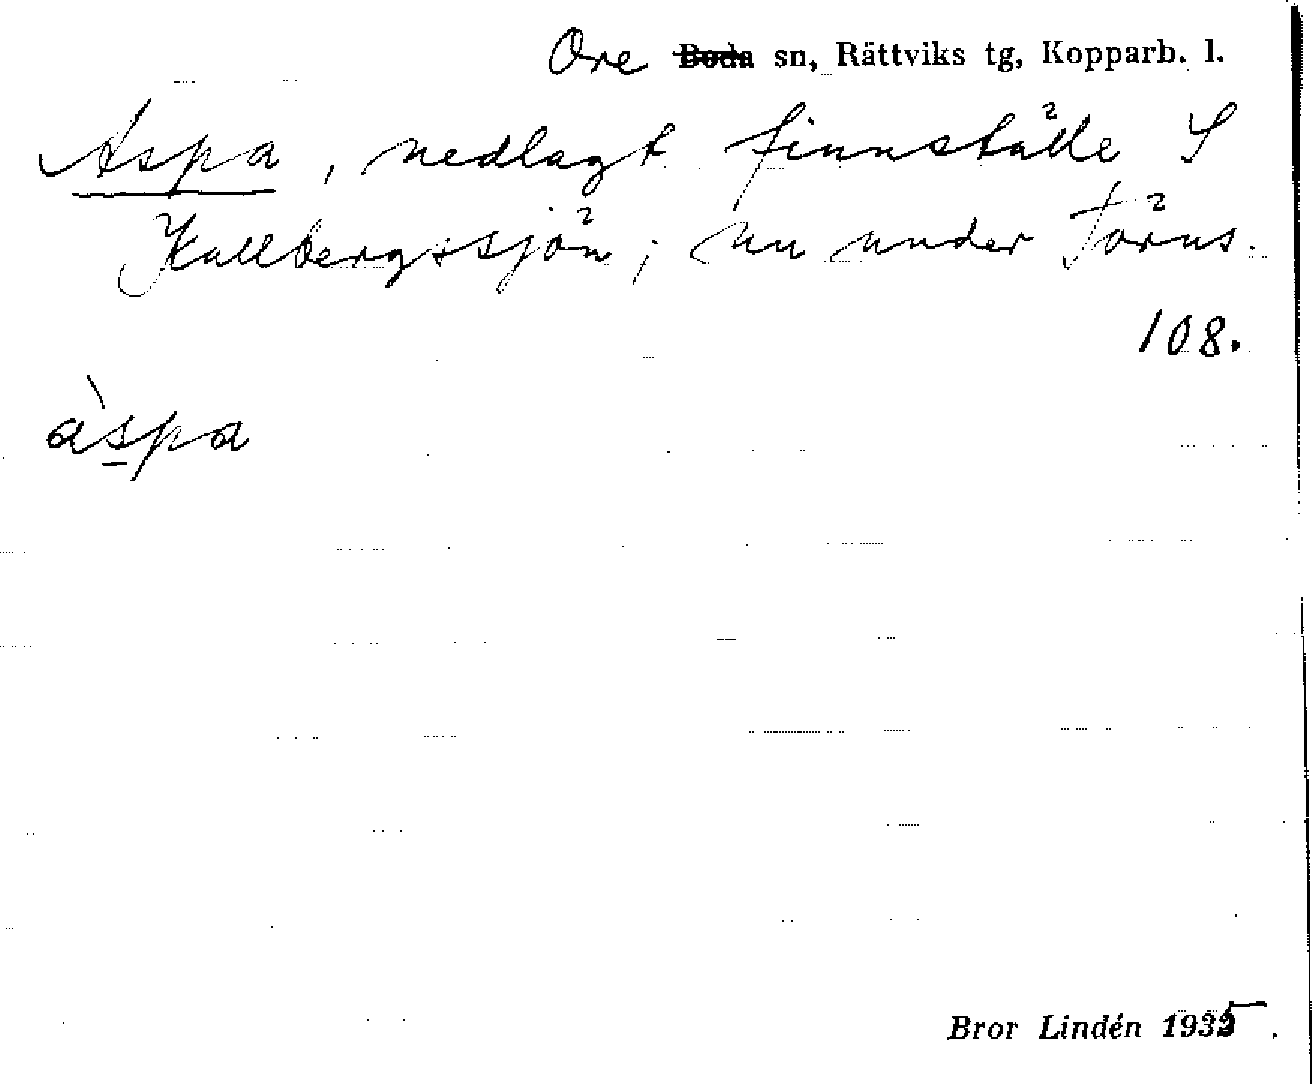 Ore Boda sn, Rättviks tg, Kopparb. l.
Aspa, nedlagt finnställe S
Kallbergssjön; nu under Töräs.
108.
àspa
Bror Lindén 1935.